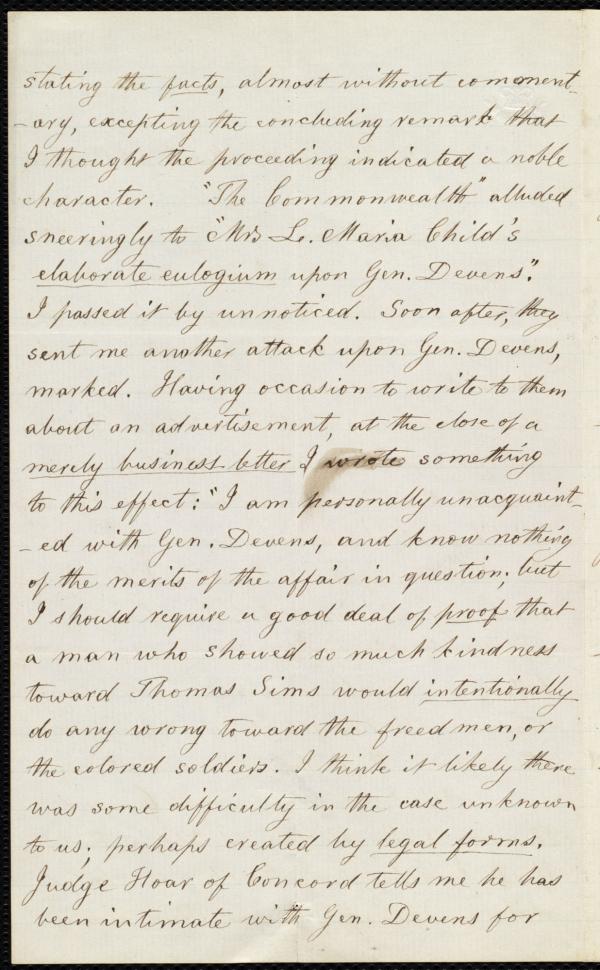 stating the facts, almost without comment-
-ary, excepting the concluding remark that
I thought the proceeding indicated a noble
character. "The Commonwealth" alluded
sneeringly to "Mrs L. Maria Child's
elaborate eulogium upon Gen. Devens".
I passed it by unnoticed. Soon after, they
sent me another attack upon Gen. Devens,
marked. Having occasion to write to them
about an advertisement, at the close of a
merely business letter I wrote something
to this effect: "I am personally unacquaint-
-ed with Gen. Devens, and know nothing
of the merits of the affair in question; but
I should require a good deal of proof that
a man who showed so much kindness
toward Thomas Sims would intentionally
do any wrong toward the freedmen, or
the colored soldiers. I think it likely there
was some difficulty in the case unknown
to us; perhaps created by legal forms.
Judge Hoar of Concord tells me he has
been intimate with Gen. Devens for